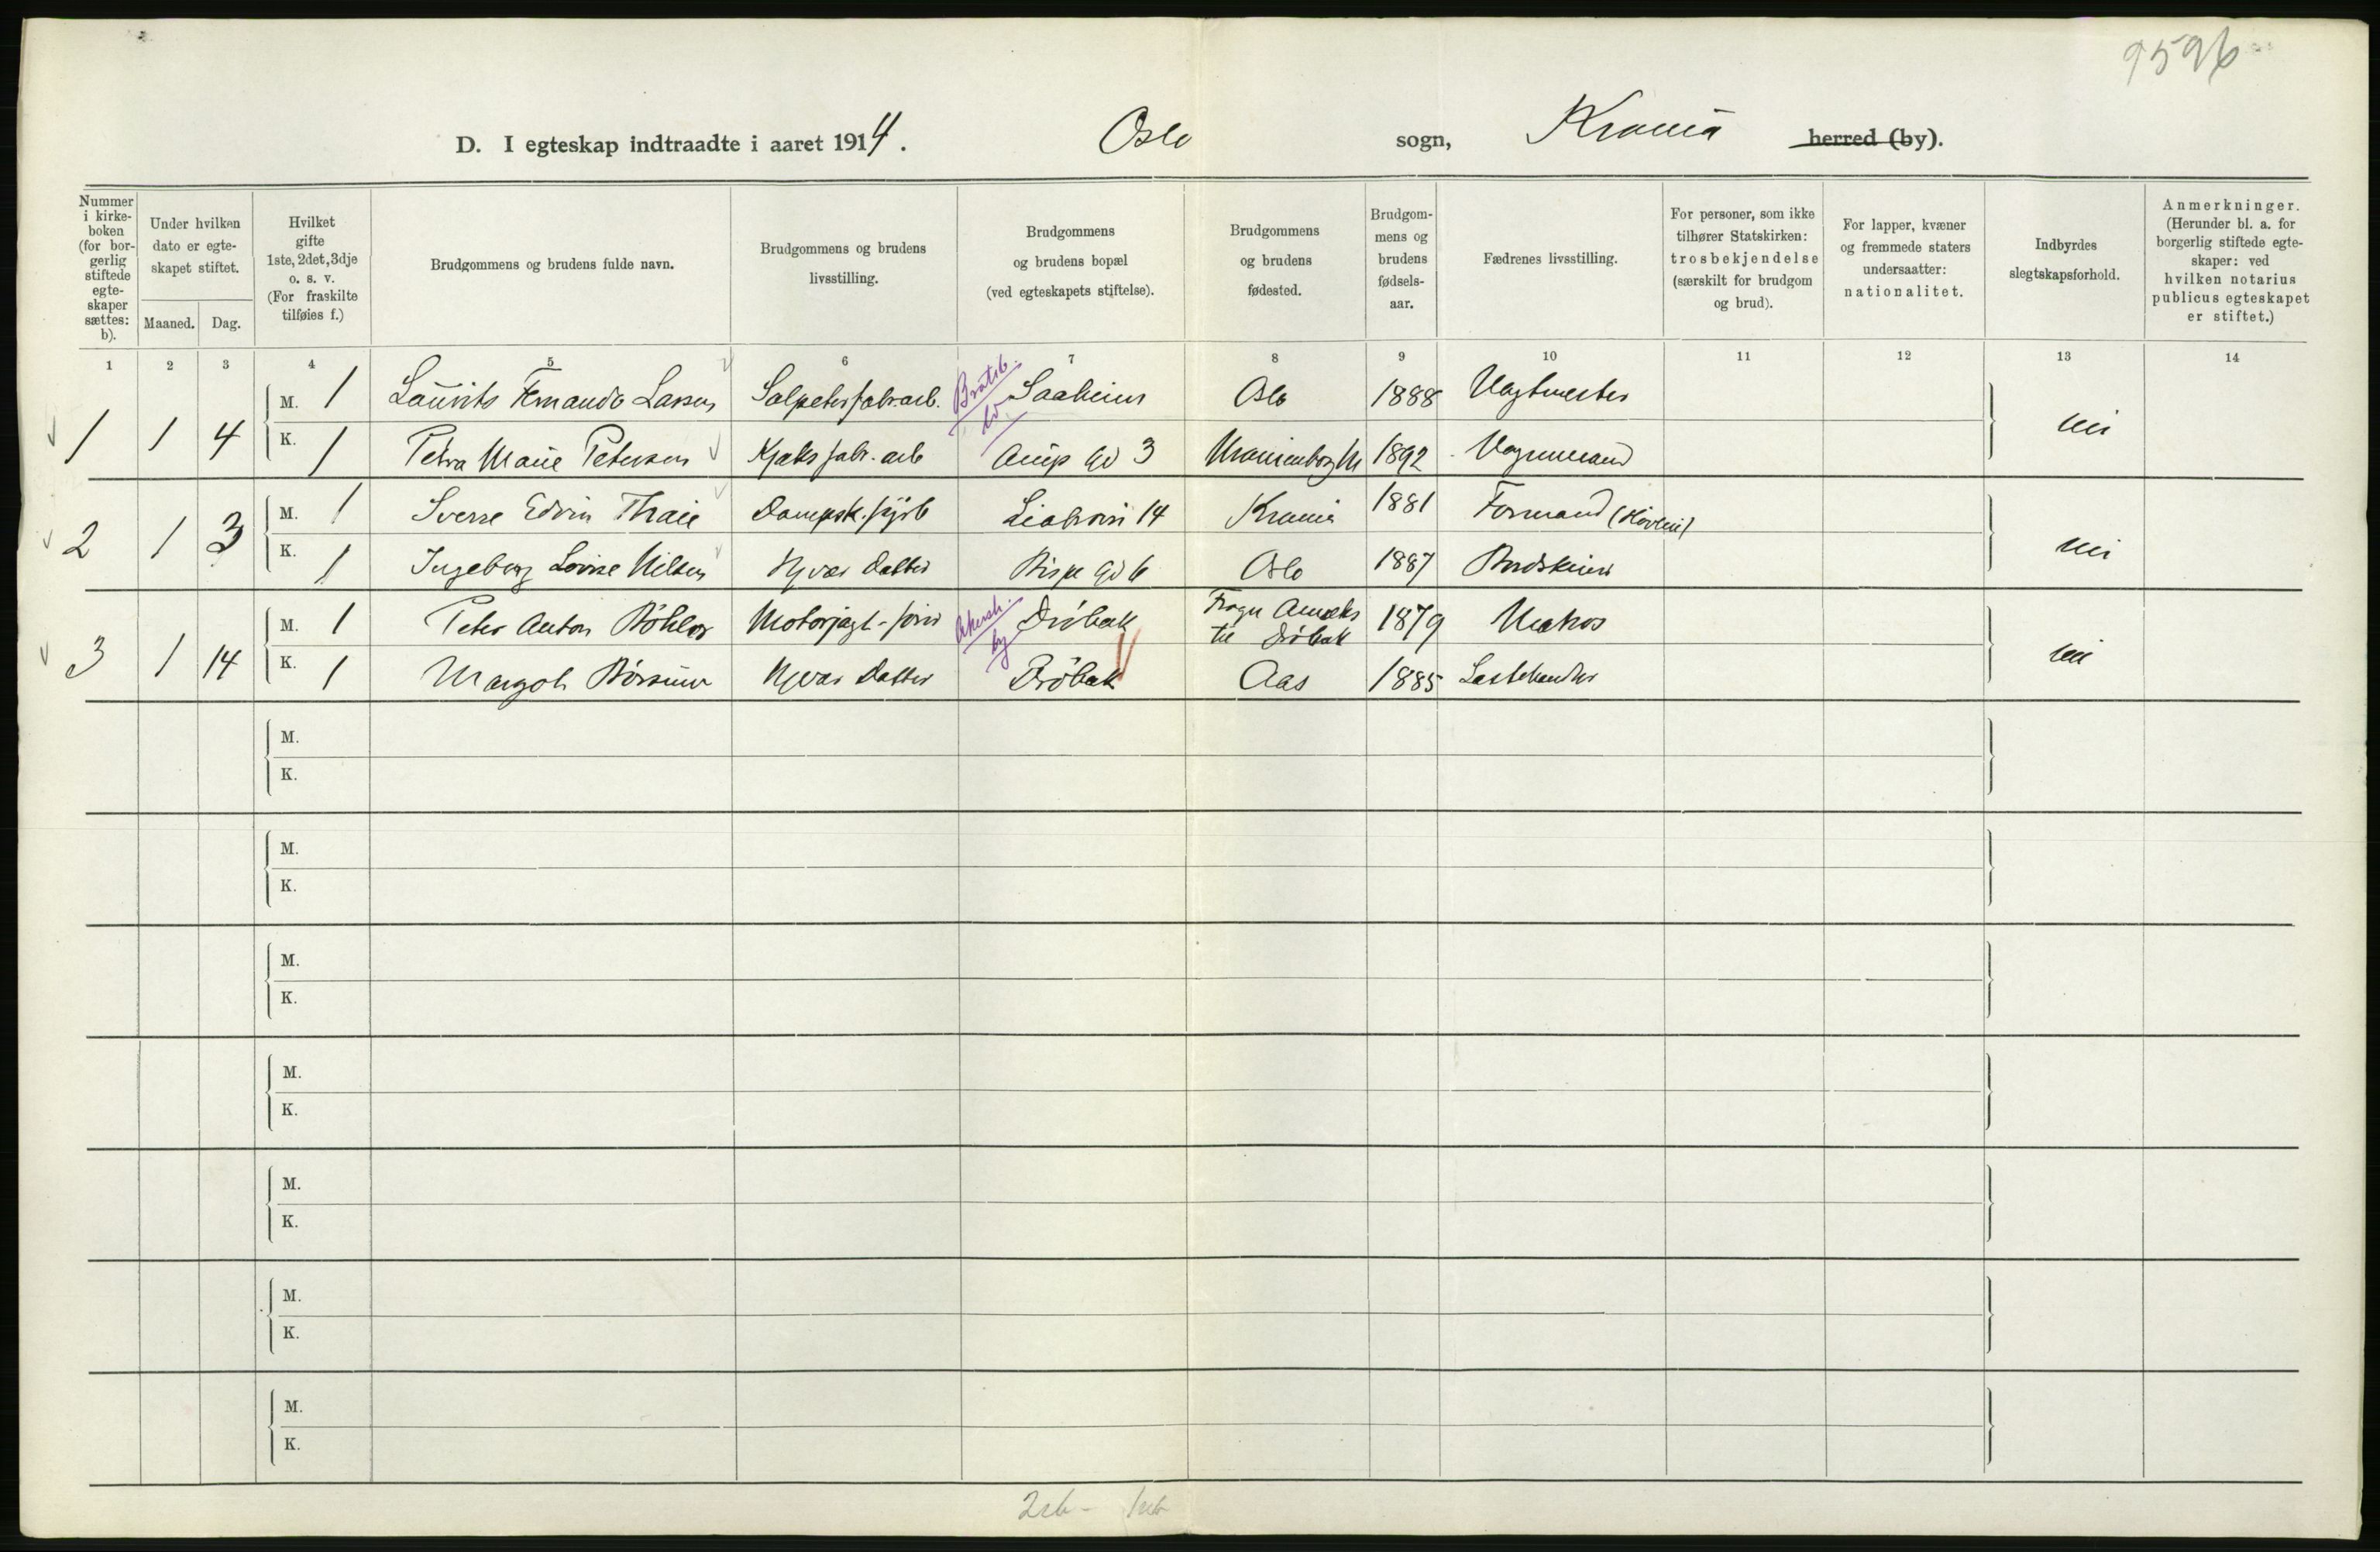 9596
D. I egteskap indtraadte i aaret 1914. Oslo sogn, Krania herred (by).
Nummer i kirke-boken (for bor-gerlig stiftede egte-skaper sættes: b).
Under hvilken dato er egte-skapet stiftet.
Maaned. Dag.
Hvilket gifte 1ste, 2det, 3dje o. s. v. (For fraskilte tilføies f.)
Brudgommens og brudens fulde navn.
Brudgommens og brudens livsstilling.
Brudgommens og brudens bopæl (ved egteskapets stiftelse).
Brudgommens og brudens fødested.
Brudgom-mens og brudens fødsels-aar.
Fædrenes livsstilling.
For personer, som ikke tilhører Statskirken: trosbekjendelse (særskilt for brudgom og brud).
For lapper, kvæner og fremmede staters undersaatter: nationalitet.
Indbyrdes slegtskapsforhold.
Anmerkninger. (Herunder bl. a. for borgerlig stiftede egte-skaper: ved hvilken notarius publicus egteskapet er stiftet.)
1 2 3 4 5 6 7 8 9 10 11 12 13 14
1 1 4 M. 1 Laurits Fernando Larsen Salpeterfabr.arb. Bratsb. Saaheim Oslo 1888 Vagtmester nei
K. 1 Petra Marie Petersen Kjæksfabr. arb Grups Gd 3 Uranienborg 1892 Vognmand
2 1 3 M. 1 Sverre Edvin Thaie Dampsk. fyrb Liabrovn 14 Krania 1881 Formand (Høvleri) nei
K. 1 Ingeborg Lovise Nilsen Hjv. Datter Bispe Gd 6 Oslo 1887 Brodskjærer
3 1 14 M. 1 Peter Anton Bøhler Motorjagt-fører Akersh. by Drøbak Frogn Anneks til Drøbak 1879 Matros nei
K. 1 Margoth Børsum Hjv. Datter Drøbak Aas 1885 Lasthandler
M.
K.
M.
K.
M.
K.
M.
K.
M.
K.
M.
K.
M.
K.